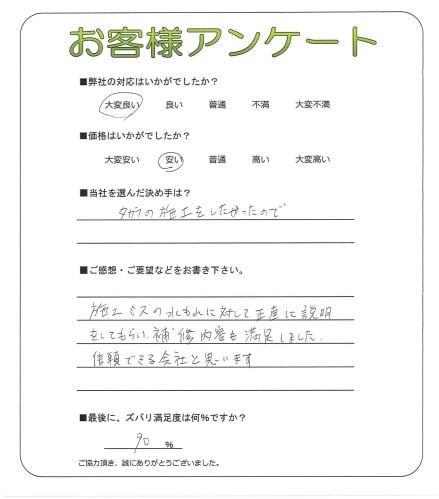 お客様アンケート
■弊社の対応はいかがでしたか？
大変良い 良い 普通 不満 大変不満
■価格はいかがでしたか？
大変安い 安い 普通 高い 大変高い
■当社を選んだ決め手は？
タカラの施工をしたかったので
■ご感想・ご要望などをお書き下さい。
施工ミスの水もれに対して正直に説明
をしてもらい、補修内容も満足しました.
信頼できる会社と思います
■最後に、ズバリ満足度は何%ですか？
90 %
ご協力頂き、誠にありがとうございました。